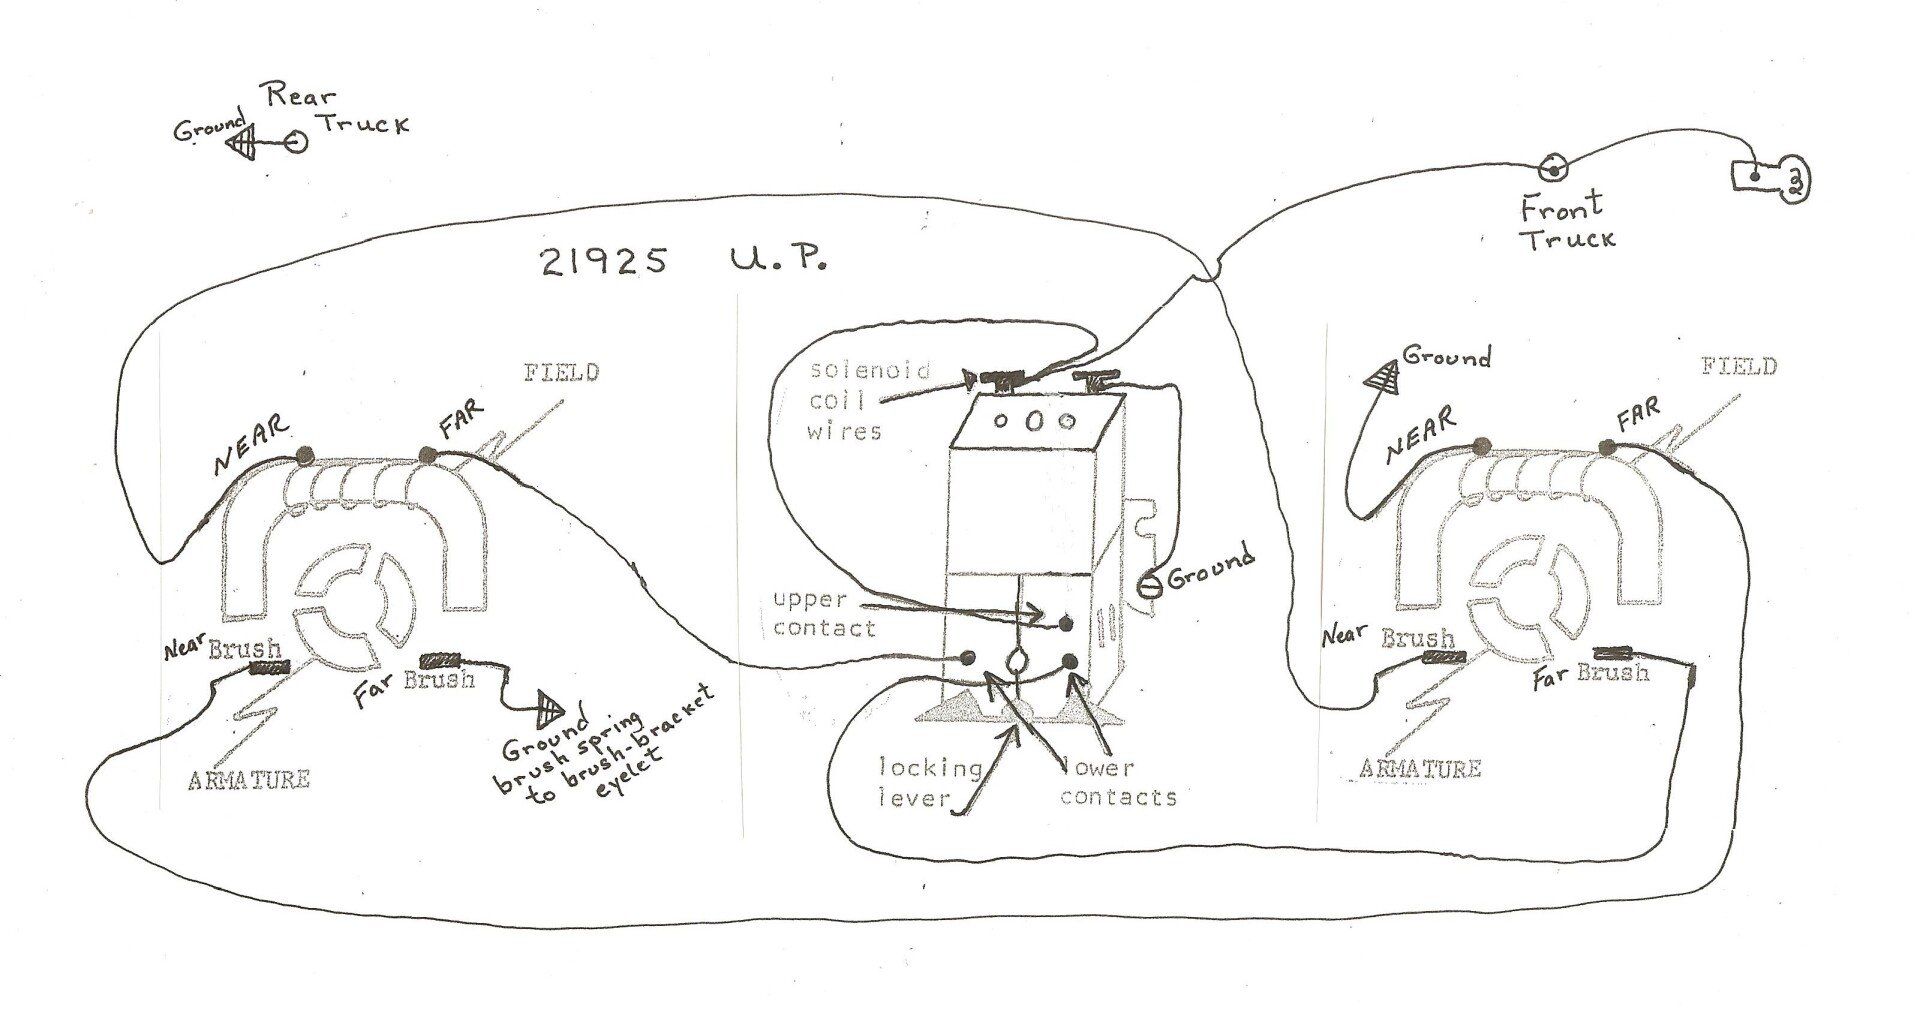 Rear
Truck
Ground
Front
Truck
21925 U.P.
FIELD
NEAR
FAR
solenoid
coil
wires
Ground
FIELD
NEAR
FAR
Ground
upper
contact
Near Brush
Far Brush
ARMATURE
Ground
brush spring
to brush-bracket
eyelet
locking
lever
lower
contacts
Near Brush
Far Brush
ARMATURE